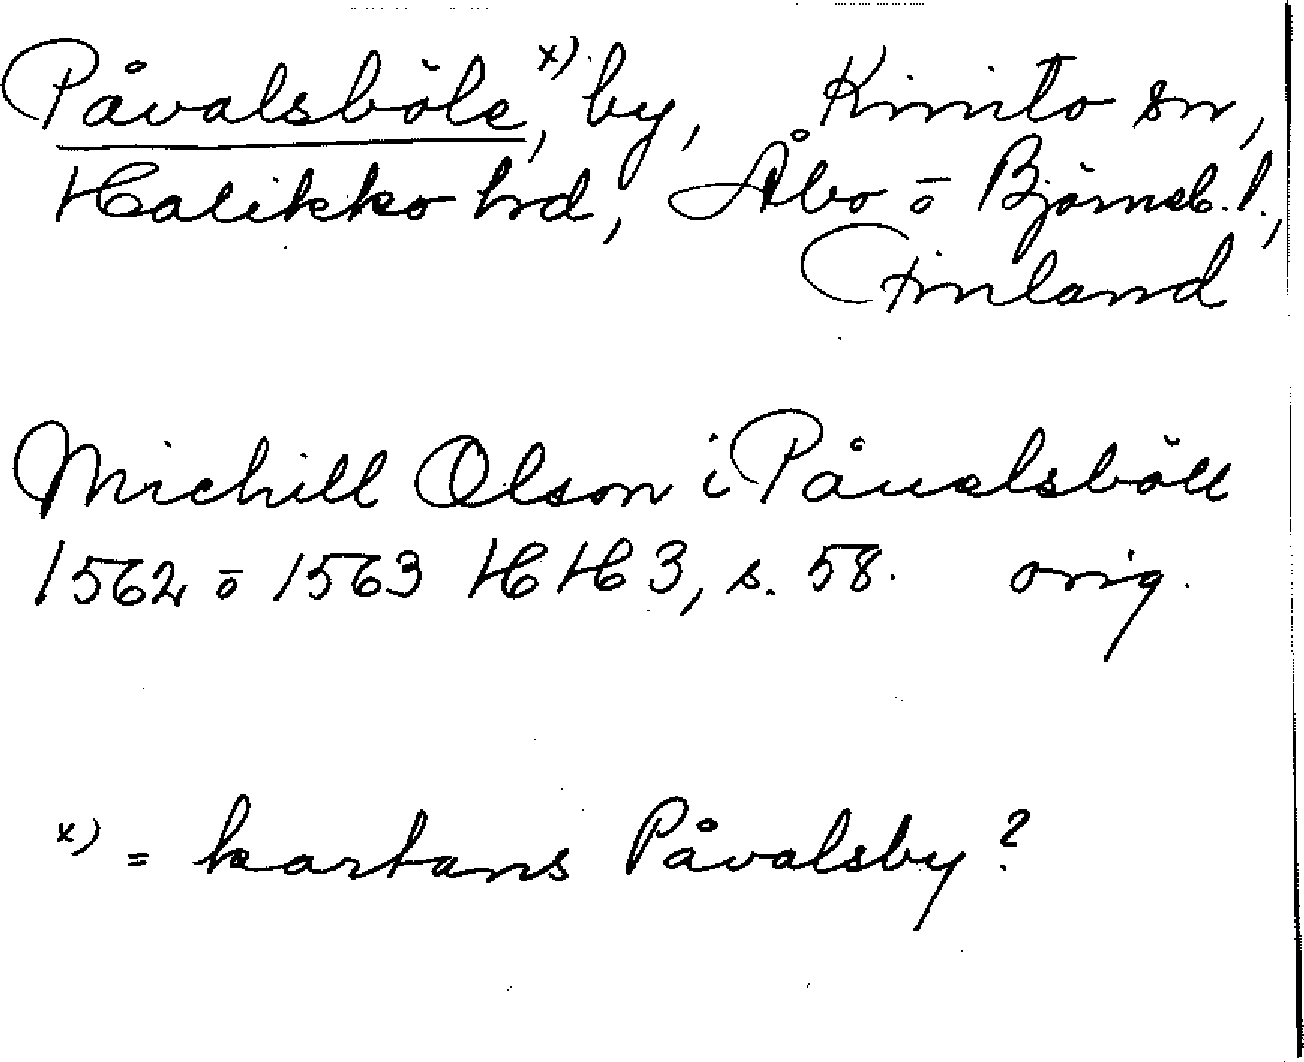 Påvalsböle,ˣ⁾ by, Kimito sn,
Halikko hrd, Åbo o Björneb. l.,
Finland
Michill Olson i Påualsböle
1562 o 1563 HH 3, s. 58. orig.
x) = kartans Påvalsby?